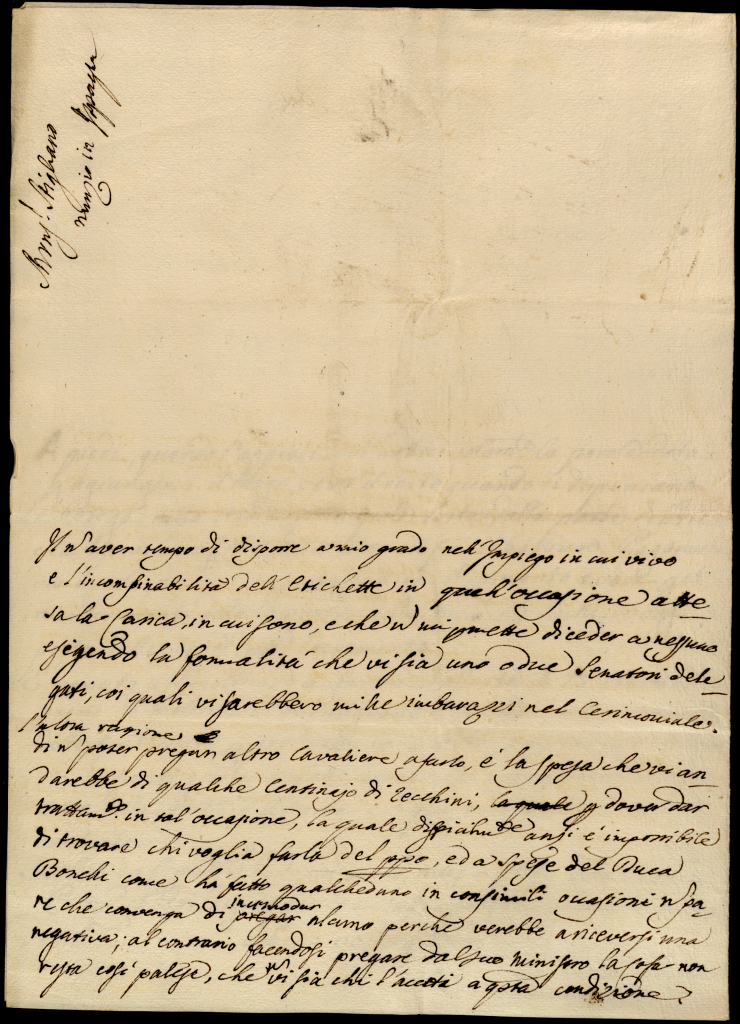 Monsʳ Stigliano
nunzio in Ispagna
Il nᵒ aver tempo di disporre a mio grado nell'Impiego in cui vivo
e l'incombinabilità dell'Etichette in quell'occasione atte
sa la Carica, in cui sono, e che nᵒ mi pmette di ceder a nessuno
esigendo la formalità che vi sia uno o due Senatori dele
gati, coi quali vi sarebbero mille imbarazzi nel Cerimoniale.
l'altra ragione
di nᵒ poter pregar altro Cavaliere a farlo, è la spesa che vi an
darebbe di qualche Centinajo di Zecchini, la quale p dover dar
trattamᵗᵒ in tal'occasione, la quale difficilmᵗᵉ anzi è impossibile
di trovare chi voglia farla del ppo, ed a spese del Duca
Bonelli come ha fatto qualcheduno in consimili occasioni nᵒ pa
incomodar
re che convenga di pregar alcuno perche verebbe a riceversi una
negativa; al contrario facendosi pregare dal suo Ministro la cosa non
resta così palese, che nᵒ vi sia chi l'accetti a qsta condizione.